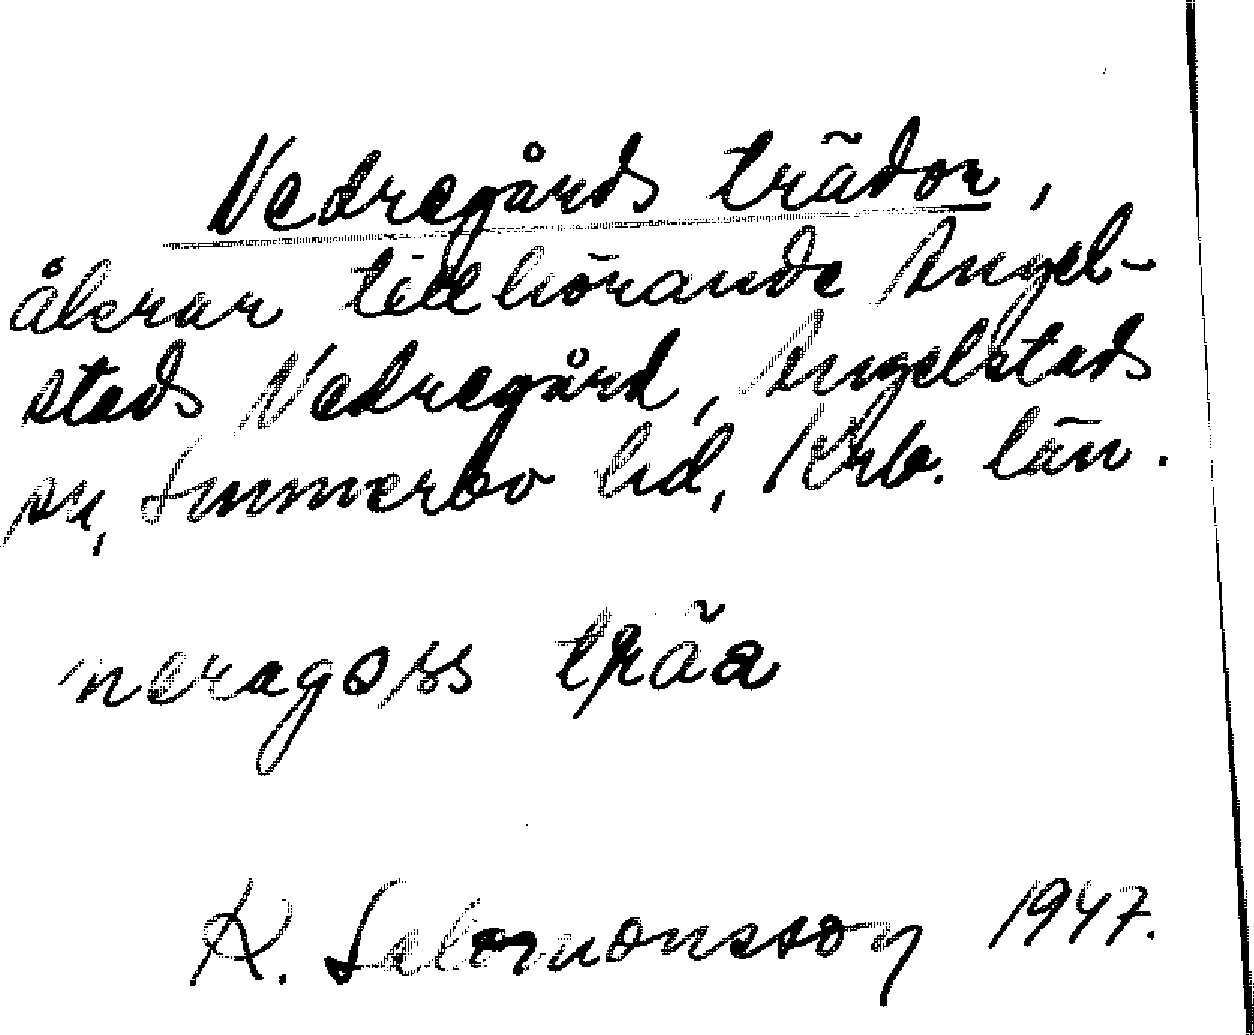 Nedregårds trädor,
åkrar tillhörande Angel-
stads Nedregård, Angelstads
sn, Sunnerbo hd, Krb. län.
K. Salomonsson 1947.